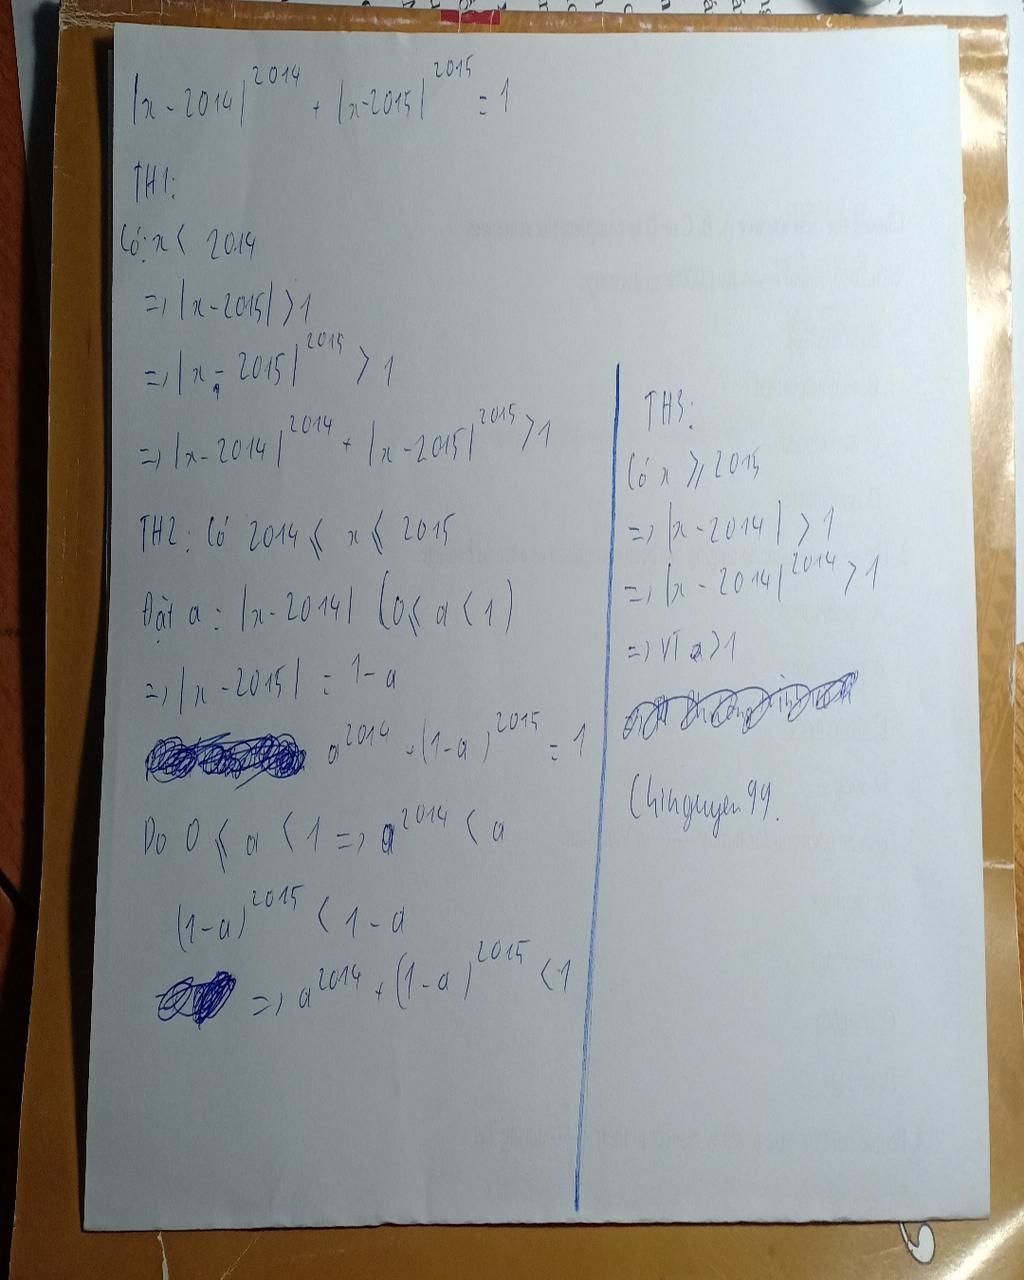 |x - 2014|^2014 + |x-2015|^2015 = 1
TH1:
Có: x < 2014
=> |x-2015| > 1
=> |x - 2015|^2015 > 1
=> |x-2014|^2014 + |x-2015|^2015 > 1
TH2: Có 2014 ⩽ x ⩽ 2015
Đặt a = |x-2014| (0 ⩽ a < 1)
=> |x-2015| = 1-a
a^2014 - (1-a)^2015 = 1
Do 0 ⩽ a < 1 => a^2014 < a
(1-a)^2015 < 1-a
=> a^2014 + (1-a)^2015 < 1
TH3:
Có x ⩾ 2015
=> |x-2014| > 1
=> |x-2014|^2014 > 1
=> VT > 1
Chinguyen99.